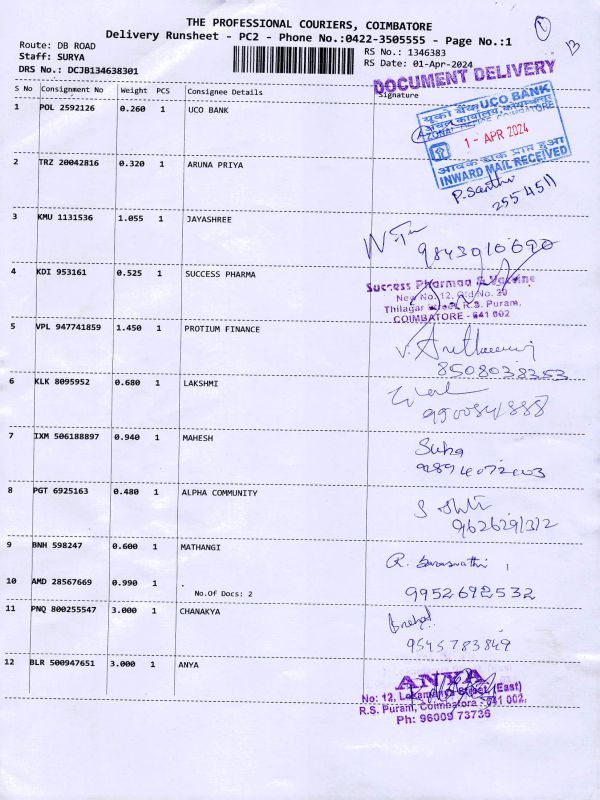 THE PROFESSIONAL COURIERS, COIMBATORE
Delivery Runsheet - PC2 - Phone No.:0422-3505555 - Page No.:1
Route: DB ROAD
Staff: SURYA
DRS No.: DCJB134638301
RS No.: 1346383
RS Date: 01-Apr-2024
DOCUMENT DELIVERY
S No Consignment No Weight PCS Consignee Details Signature
1 POL 2592126 0.260 1 UCO BANK
यूको बैंक UCO BANK
1 - APR 2024
आवक डाक प्राप्त हुआ
INWARD MAIL RECEIVED
P. Santhi
255 4511
2 TRZ 20042816 0.320 1 ARUNA PRIYA
3 KMU 1131536 1.055 1 JAYASHREE
9843010690
4 KDI 953161 0.525 1 SUCCESS PHARMA
Success Pharmaa & Vaccine
New No: 12, Old No. 20
Thilagar Street, R.S. Puram,
COIMBATORE - 641 002
5 VPL 947741859 1.450 1 PROTIUM FINANCE
8508038353
6 KLK 8095952 0.680 1 LAKSHMI
7 IXM 506188897 0.940 1 MAHESH
Suba
9894072003
8 PGT 6925163 0.480 1 ALPHA COMMUNITY
9626291312
9 BNH 598247 0.600 1 MATHANGI
R. Saraswathi
10 AMD 28567669 0.990 1 .
No.Of Docs: 2
9952692532
11 PNQ 800255547 3.000 1 CHANAKYA
9545783849
12 BLR 500947651 3.000 1 ANYA
ANYA
No: 12, Lokamanya Street, (East)
R.S. Puram, Coimbatore - 641 002.
Ph: 96009 73736